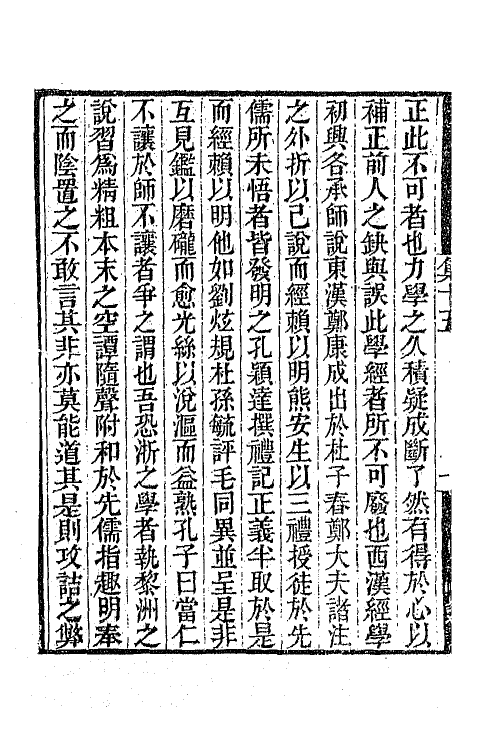 正此不可者也力學之久積疑成斷了然有得於心以
補正前人之缺與誤此學經者所不可廢也西漢經學
初興各承師說東漢鄭康成出於杜子春鄭大夫諸注
之外折以己說而經賴以明熊安生以三禮授徒於先
儒所未悟者皆發明之孔穎達撰禮記正義半取於是
而經賴以明他如劉炫規杜孫毓評毛同異並呈是非
互見鑑以磨礲而愈光絲以涚漚而益熟孔子曰當仁
不讓於師不讓者爭之謂也吾恐浙之學者執黎洲之
說習為精粗本末之空譚隨聲附和於先儒指趣明奉
之而陰置之不敢言其非亦莫能道其是則攻詰之弊
集十五